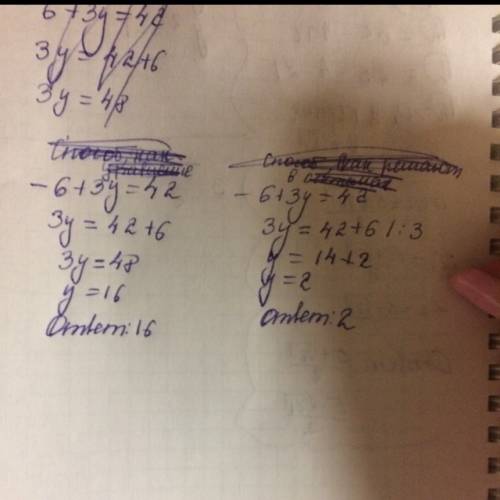 6 + 3y = 42
3y = 42+6
3y = 48
Способ, как
уравнение
- 6 + 3y = 42
3y = 42 + 6
3y = 48
y = 16
Ответ: 16
Способ как решают
в
- 6 + 3y = 42
3y = 42 + 6 / : 3
y = 14 + 2
y = 2
Ответ: 2